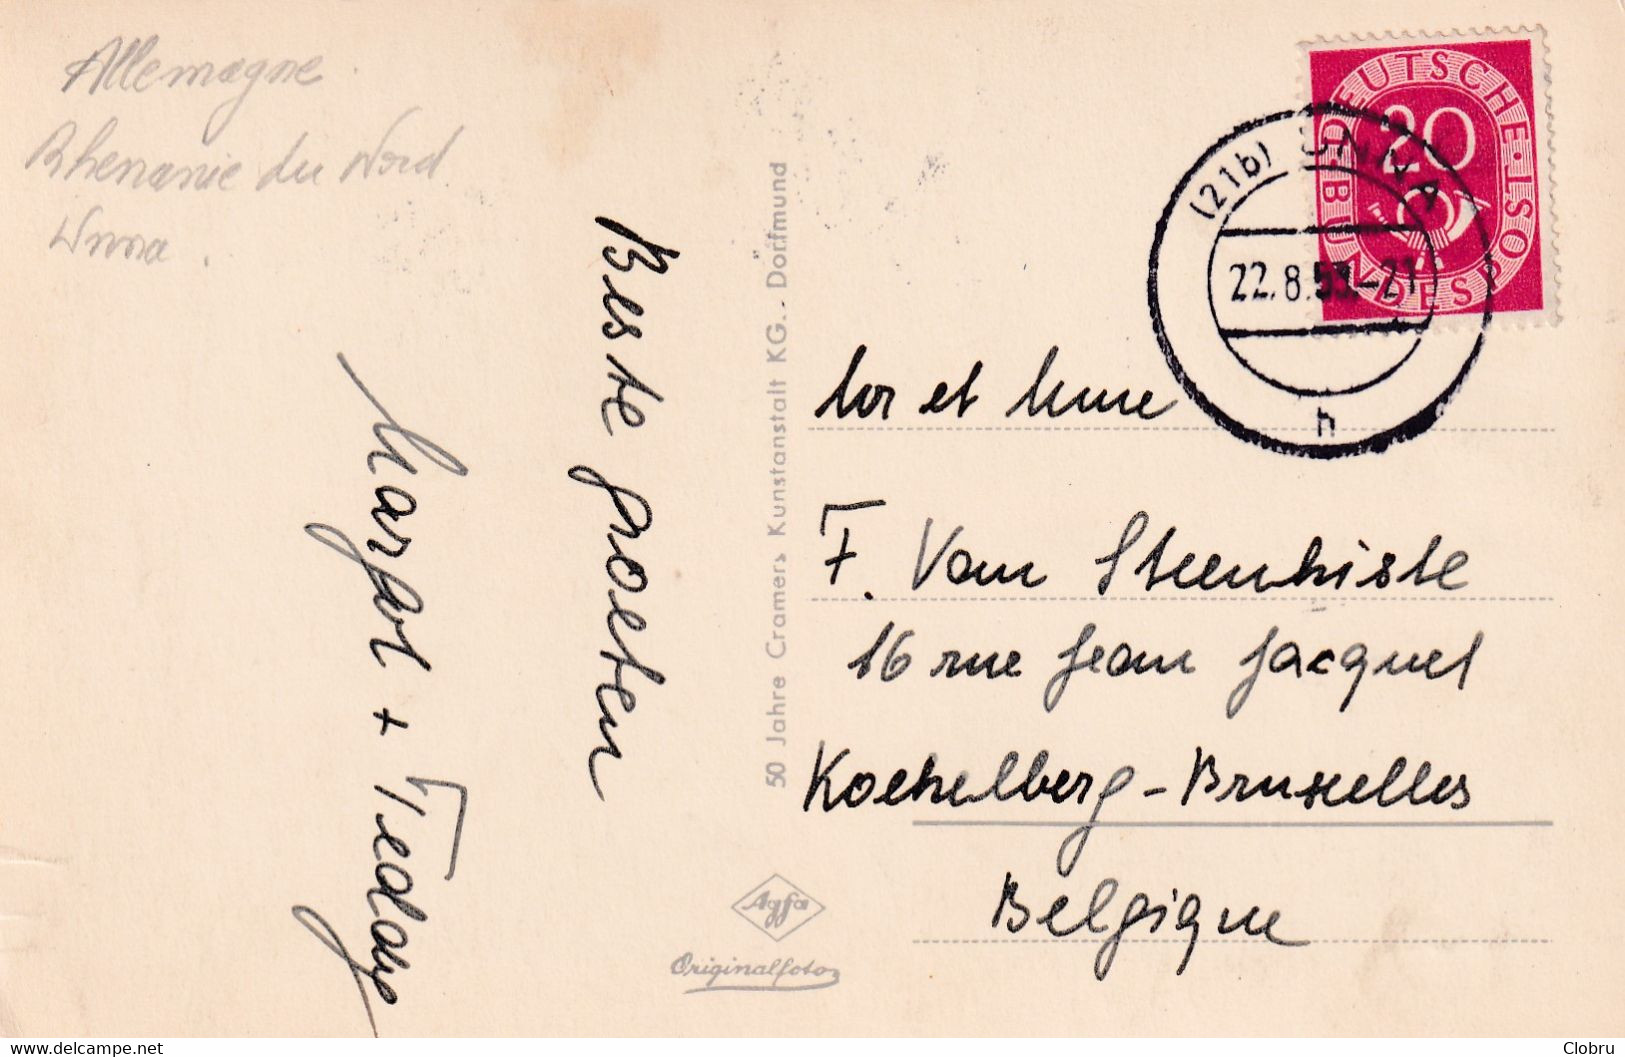 Allemagne
Rhenanie du Nord
Unna.
Beste groeten
Margot + Teddy
50 Jahre Cramers Kunstanstalt KG., Dortmund
Agfa
Originalfoto
DEUTSCHE BUNDESPOST
20
(21b) UNNA
22.8.53.-21
h
et
F. Van Steenkiste
16 rue Jean Jacquet
Koekelberg - Bruxelles
Belgique
Clobru
www.delcampe.net